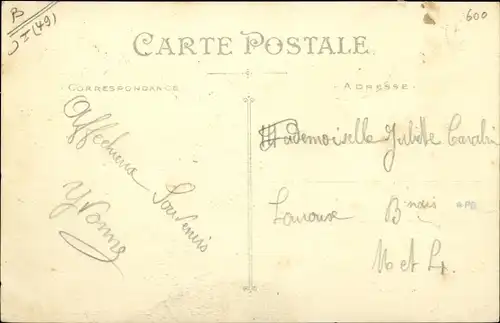 B
J I (49)
600
CARTE POSTALE
CORRESPONDANCE
ADRESSE
Affectueux Souvenirs
Yvonne
Mademoiselle Juliette Cavalin
Louroux Bnais
M et L.